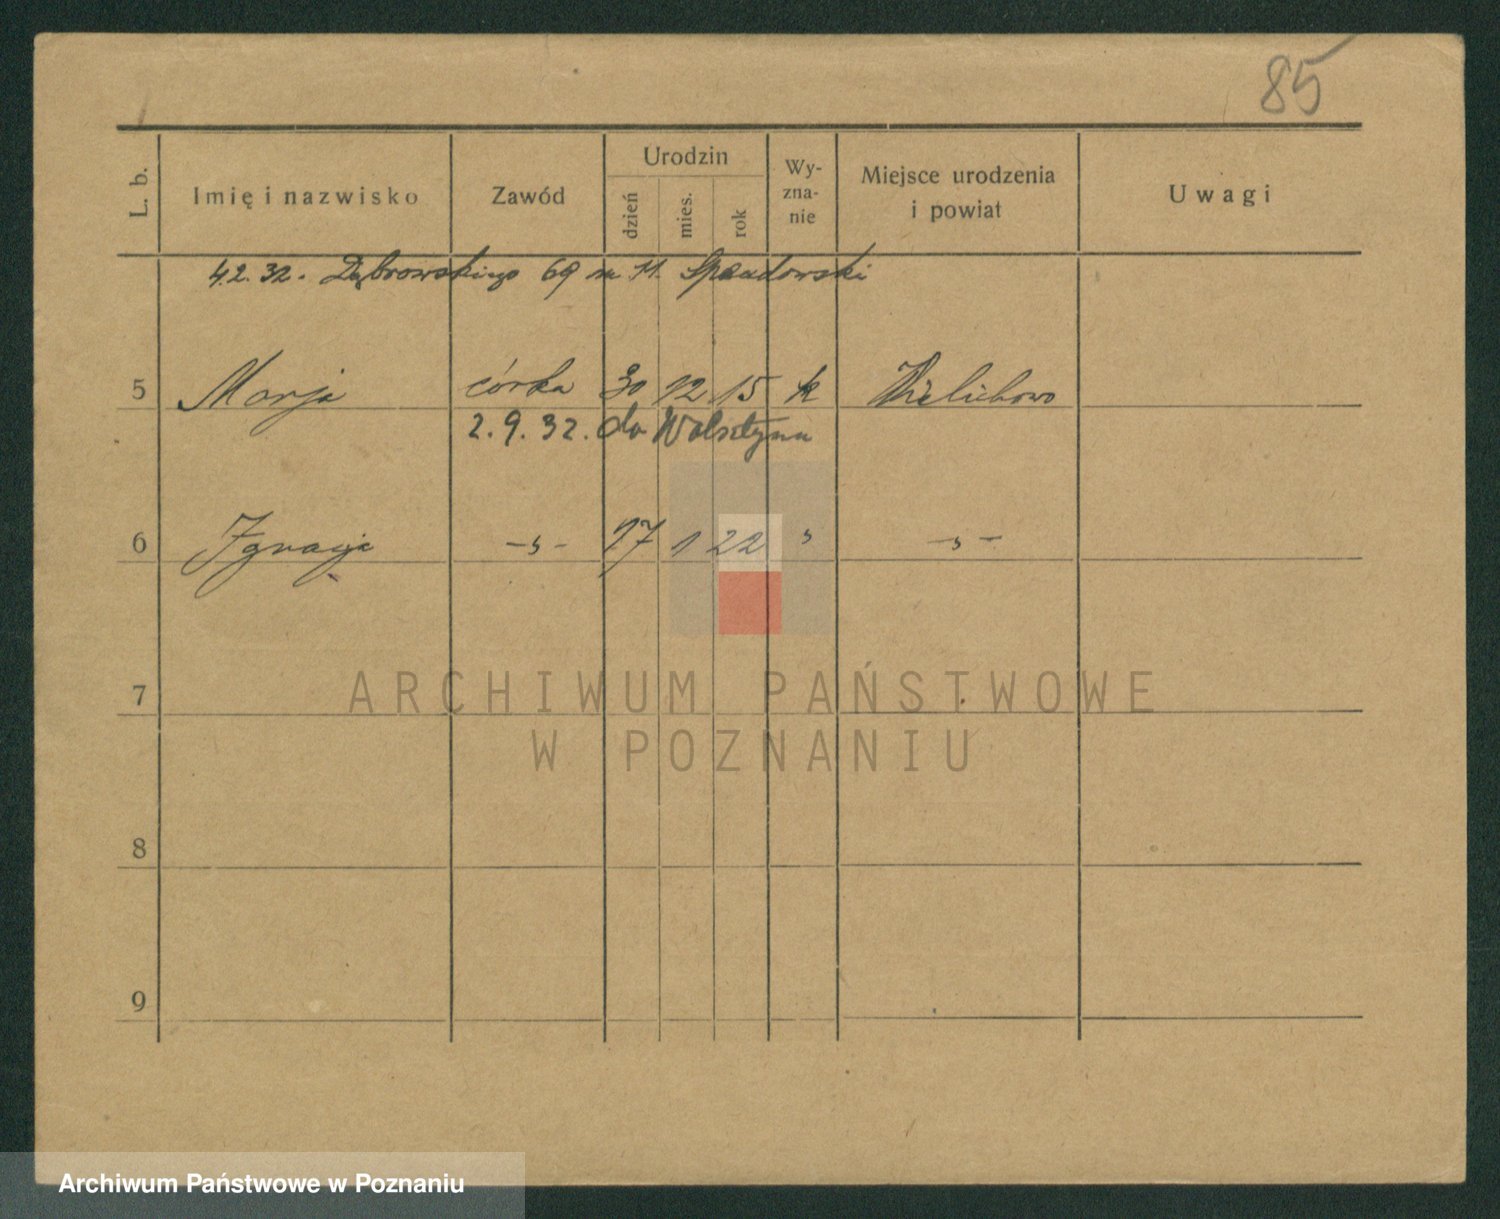 85
L. b.
Imię i nazwisko
Zawód
Urodzin
dzień
mies.
rok
Wy-
zna-
nie
Miejsce urodzenia
i powiat
Uwagi
4.2.32. Dąbrowskiego 69 m 11.
5 Marja córka 30 12 15 k Wielichowo
2.9.32. do Wolsztyna
6 Ignacja -„- 17 1 22 „ -„-
7
ARCHIWUM PAŃSTWOWE
W POZNANIU
8
9
Archiwum Państwowe w Poznaniu